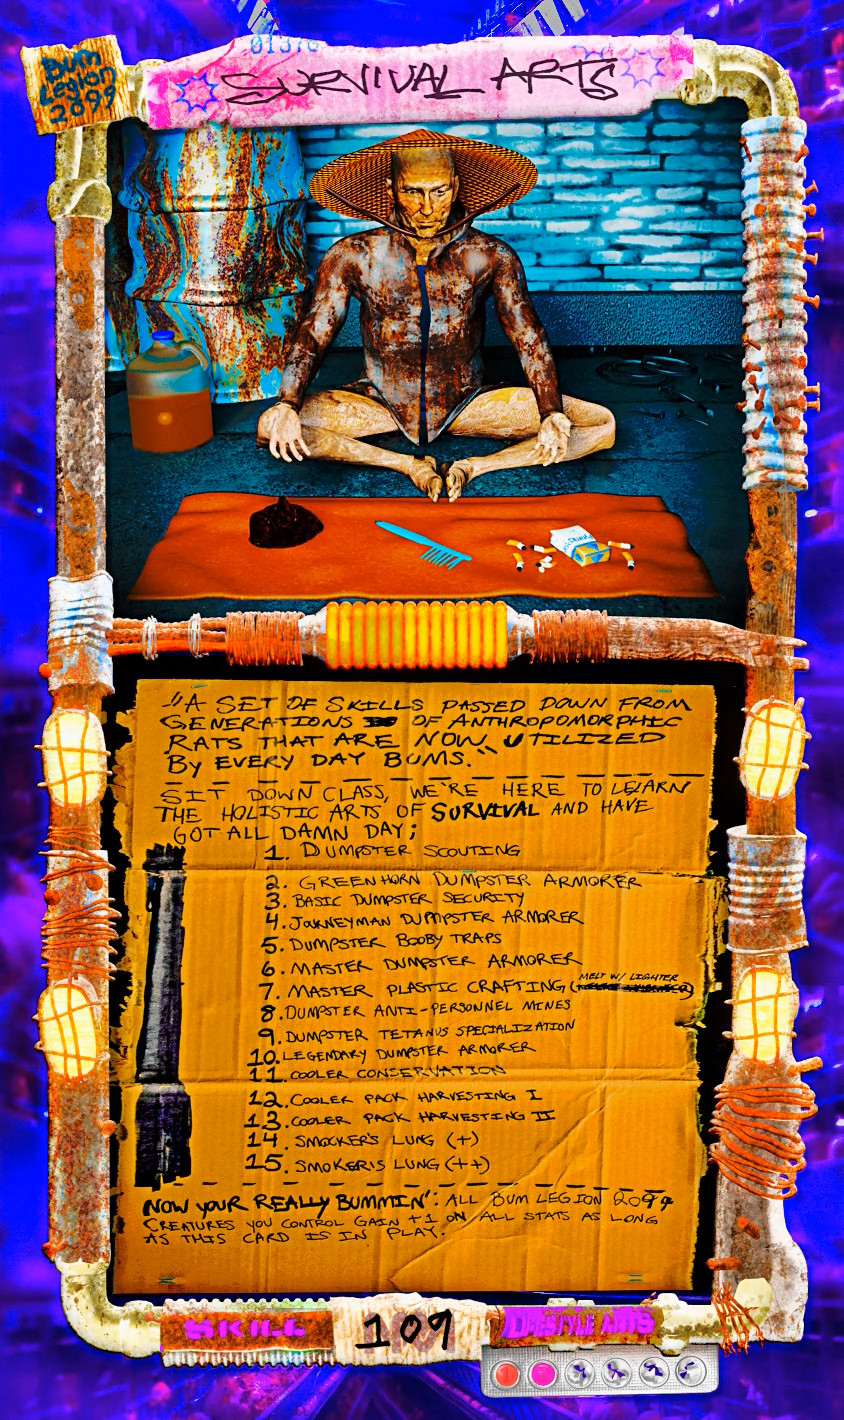 01376
Bum
Legion
2099
SURVIVAL ARTS
"A SET OF SKILLS PASSED DOWN FROM
GENERATIONS OF ANTHROPOMORPHIC
RATS THAT ARE NOW UTILIZED
BY EVERY DAY BUMS."
SIT DOWN CLASS, WE'RE HERE TO LEARN
THE HOLISTIC ARTS OF SURVIVAL AND HAVE
GOT ALL DAMN DAY;
1. DUMPSTER SCOUTING
2. GREENHORN DUMPSTER ARMORER
3. BASIC DUMPSTER SECURITY
4. JOURNEYMAN DUMPSTER ARMORER
5. DUMPSTER BOOBY TRAPS
6. MASTER DUMPSTER ARMORER
MELT W/ LIGHTER
7. MASTER PLASTIC CRAFTING ( )
8. DUMPSTER ANTI-PERSONNEL MINES
9. DUMPSTER TETANUS SPECIALIZATION
10. LEGENDARY DUMPSTER ARMORER
11. COOLER CONSERVATION
12. COOLER PACK HARVESTING I
13. COOLER PACK HARVESTING II
14. SMOCKER'S LUNG (+)
15. SMOKER'S LUNG (++)
NOW YOUR REALLY BUMMIN': ALL BUM LEGION 2099
CREATURES YOU CONTROL GAIN +1 ON ALL STATS AS LONG
AS THIS CARD IS IN PLAY.
SKILL
109
LIFESTYLE ARTS